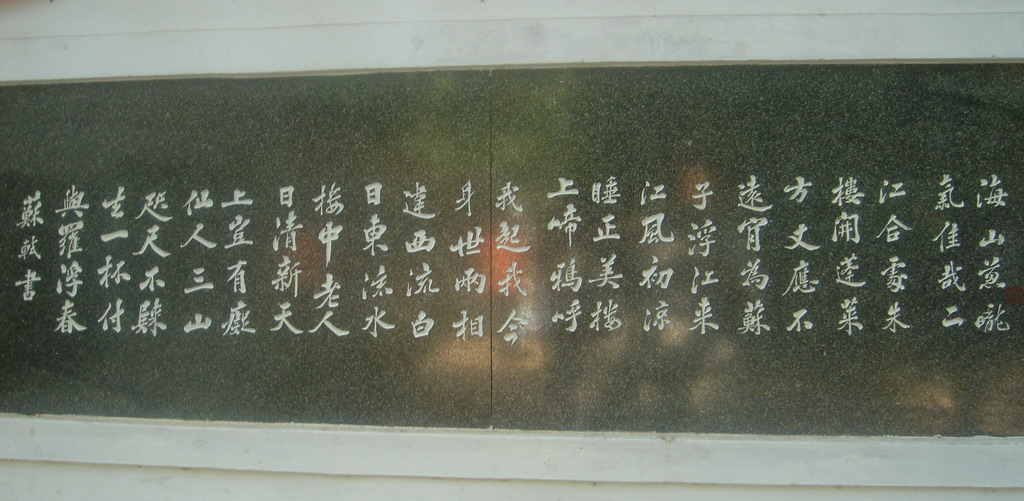 海山葱曨
氣佳哉二
江合處朱
樓開蓬萊
方丈應不
遠肯為蘇
子浮江来
江風初涼
睡正美楼
上啼鴉呼
我起我今
身世兩相
違西流白
日東流水
楼中老人
日清新天
上豈有癡
仙人三山
咫尺不歸
去一杯付
與羅浮春
蘇軾書